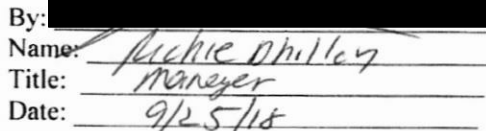 By:
Name: Richie Dhillon
Title: Maneger
Date: 9/25/18